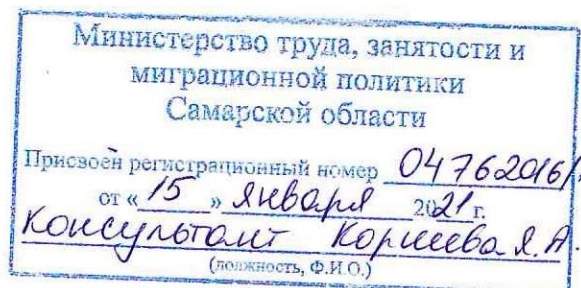 Министерство труда, занятости и
миграционной политики
Самарской области
Присвоен регистрационный номер 04762016/
от « 15 » января 2021 г.
консультант Я.А.
(должность, Ф.И.О.)